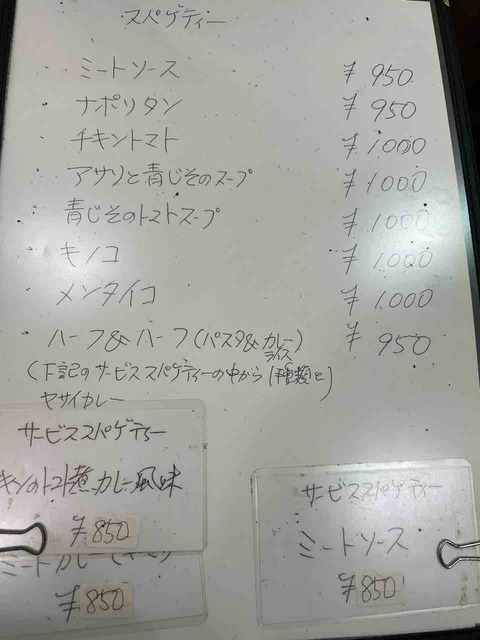 スパゲティー
ミートソース ¥950
ナポリタン ¥950
チキントマト ¥1000
アサリと青じそのスープ ¥1000
青じそのトマトスープ ¥1,000
キノコ ¥1,000
メンタイコ ¥1,000
ハーフ&ハーフ(パスタ&カレーライス) ¥950
(下記のサービススパゲティーの中から1種類と)
ヤサイカレー
サービススパゲティー
キンのトマト煮カレー風味
¥850
¥850
サービススパゲティー
ミートソース
¥850